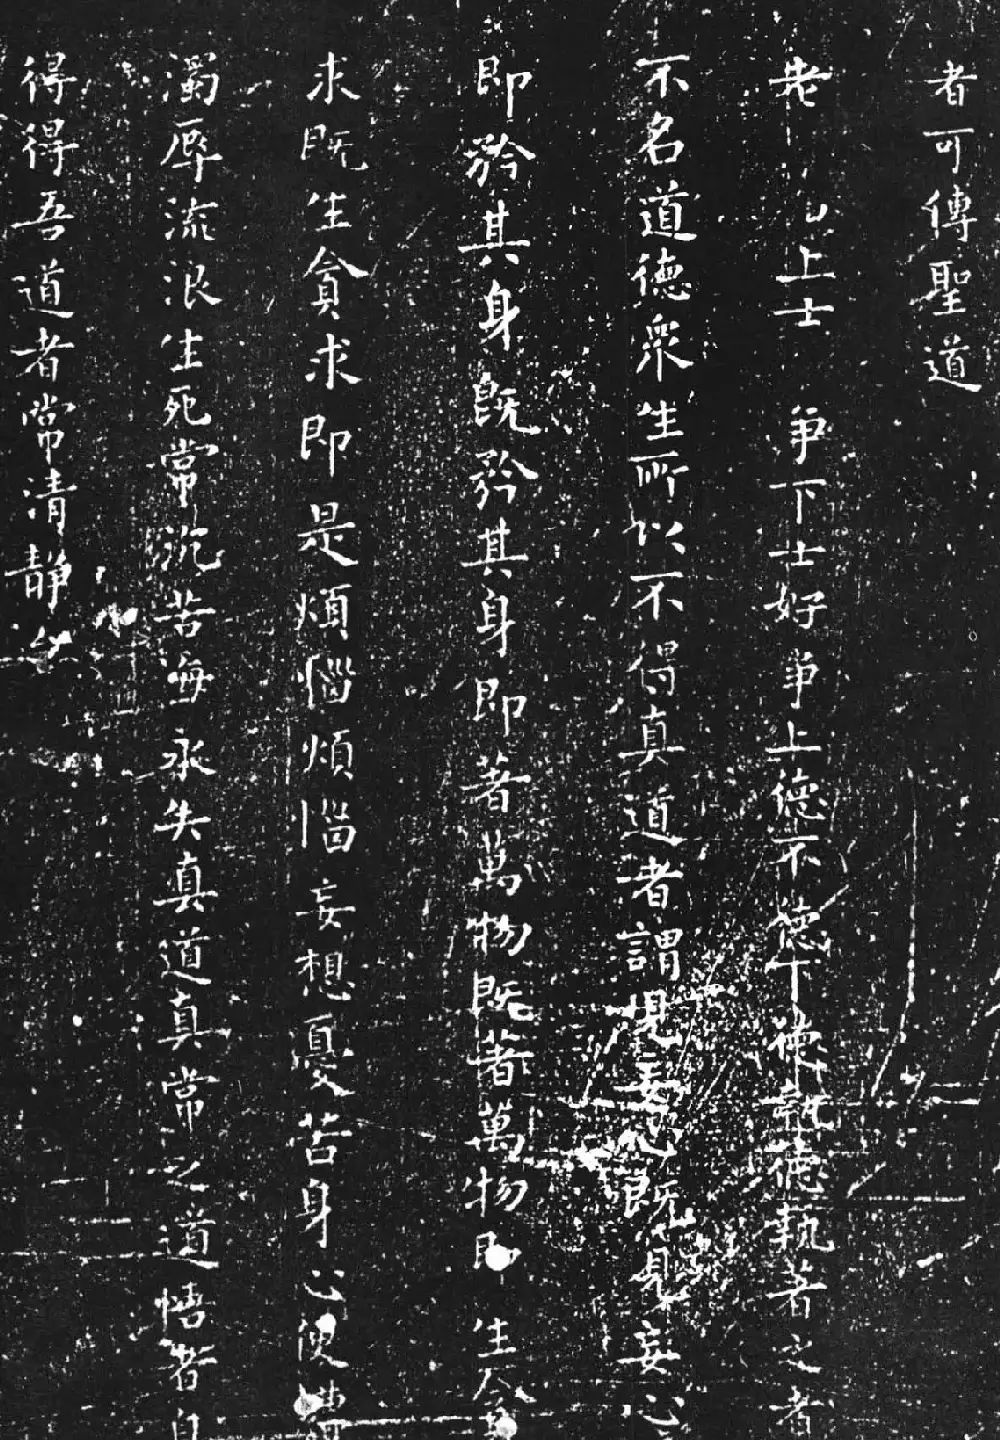 者可傳聖道
老上士爭下士好爭上德不德下德執德執著之者
不名道德衆生所以不得真道者謂現妄心既見妄心
即矜其身既矜其身即著萬物既著萬物即生貪
求既生貪求即是煩惱煩惱妄想憂苦身心便遭
濁辱流浪生死常沉苦海永失真道真常之道悟者自
得得吾道者常清靜矣